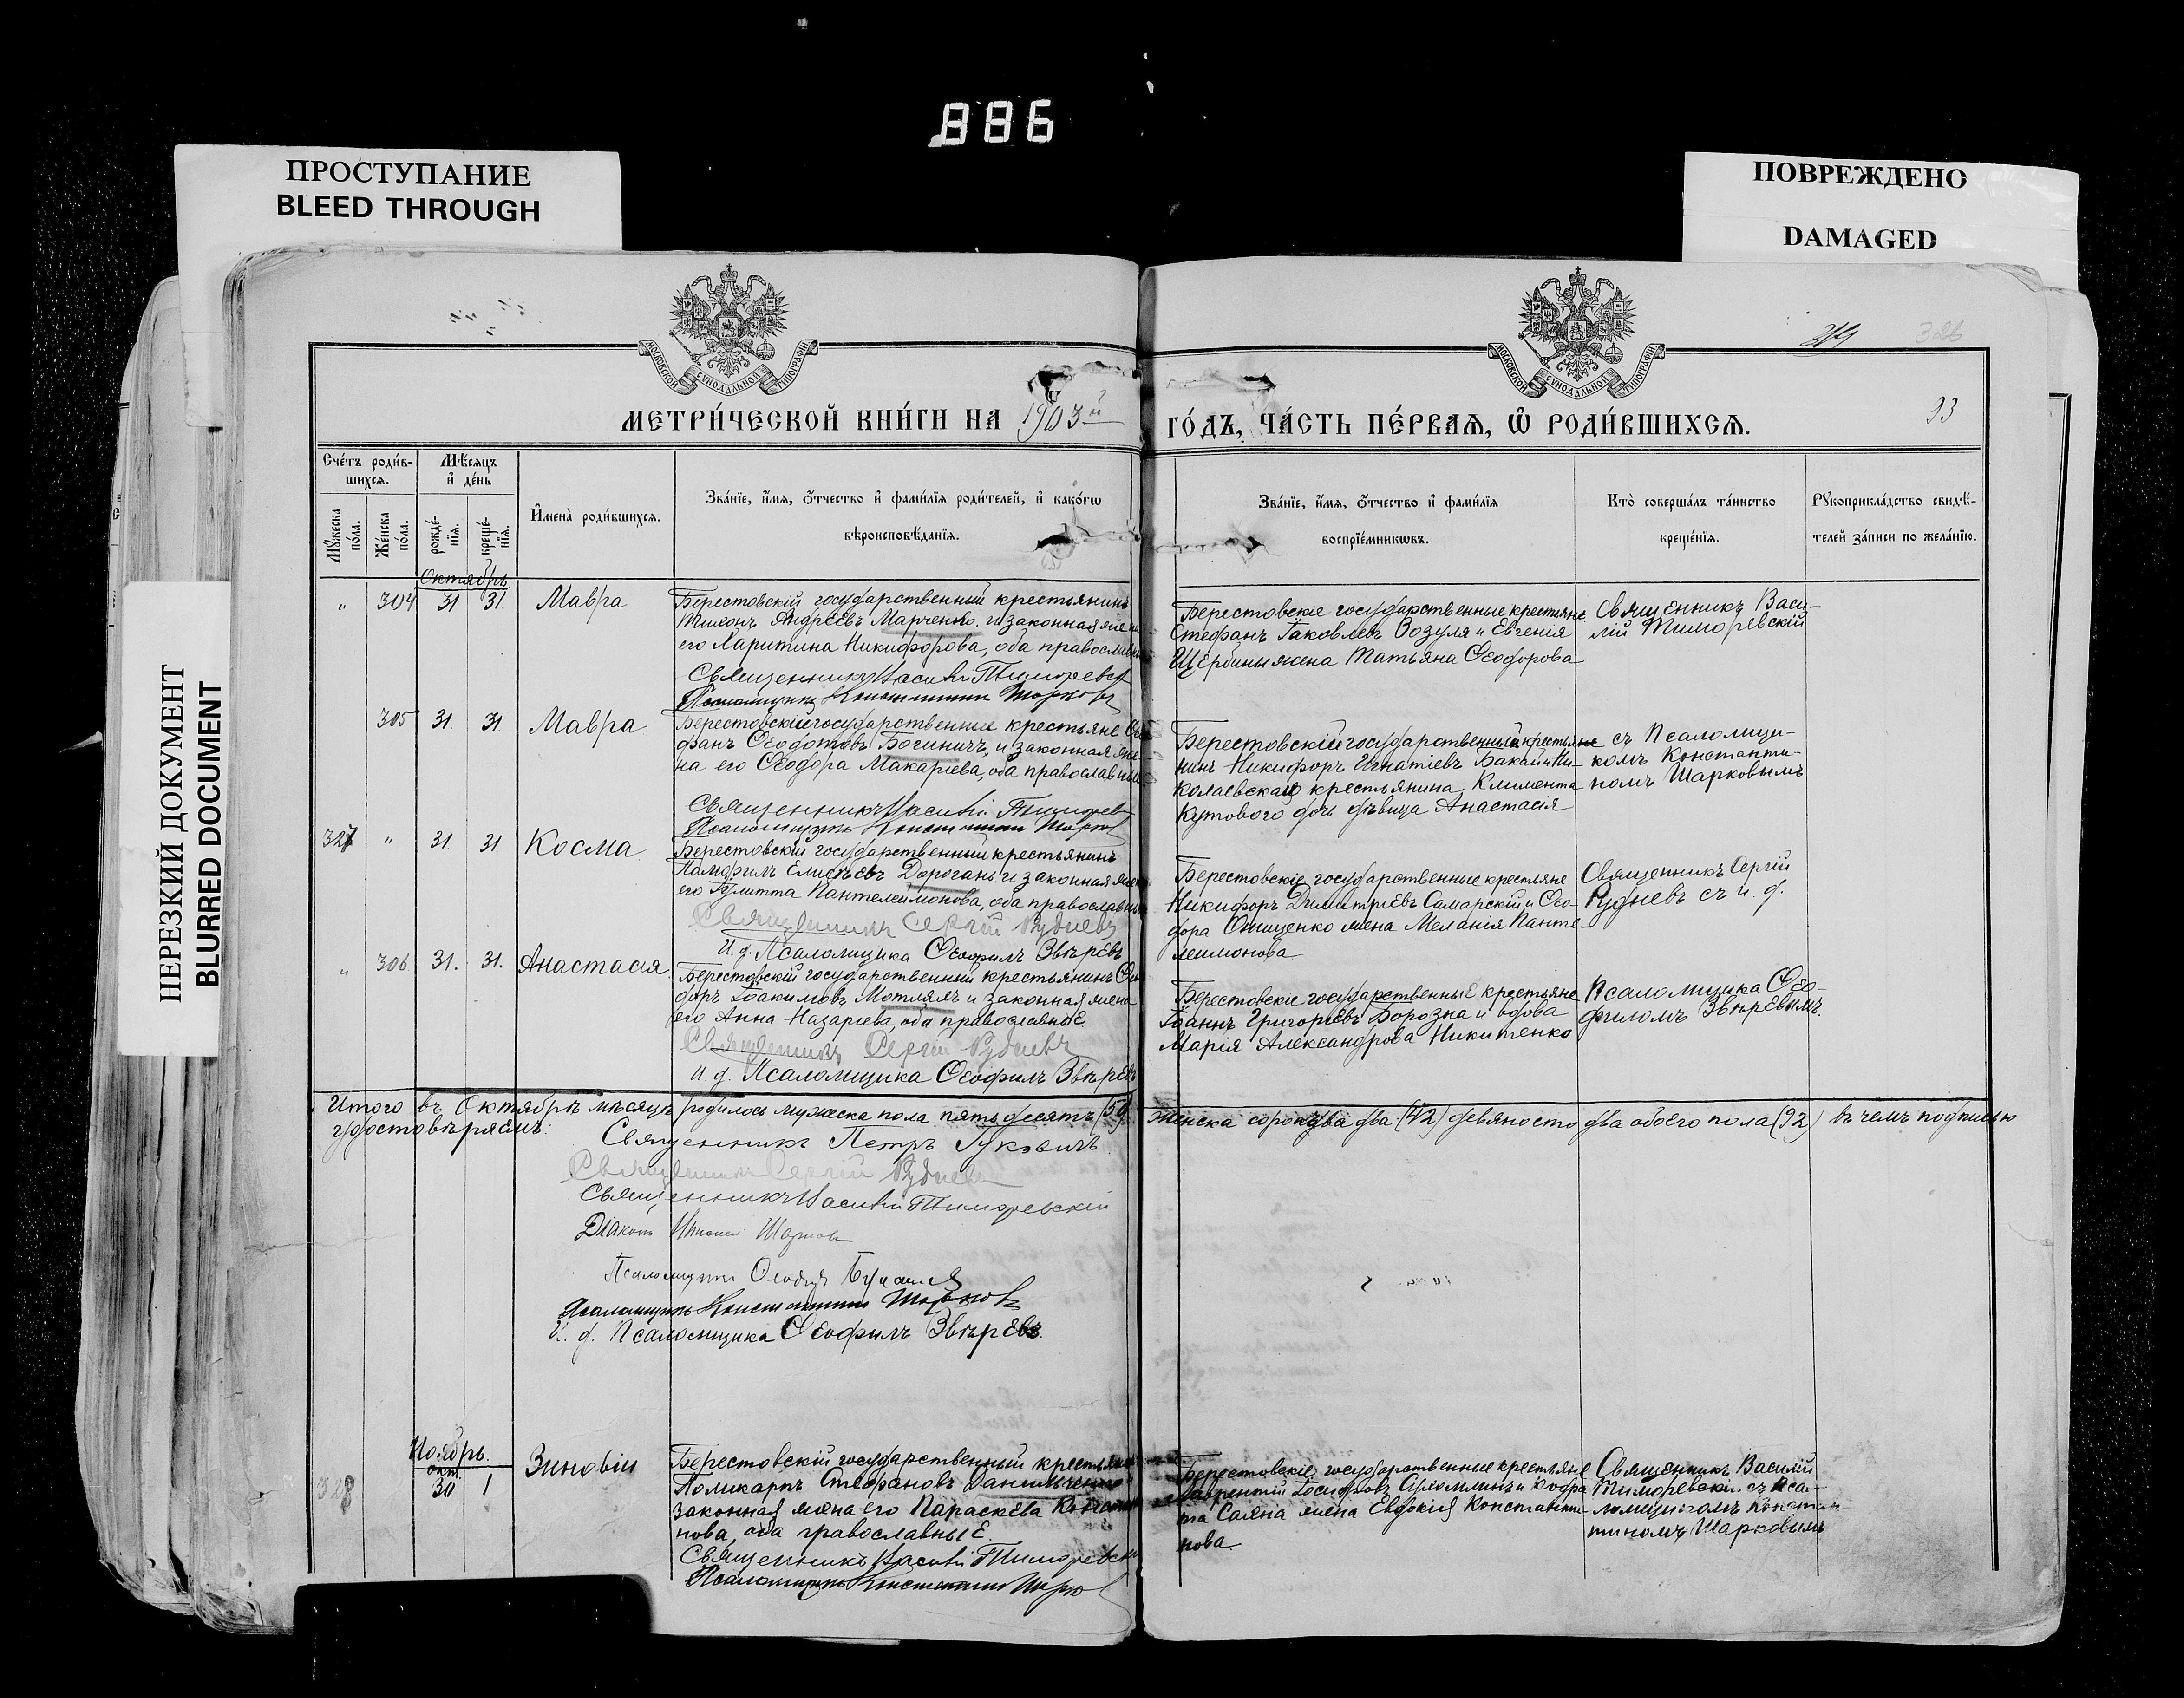 886
ПРОСТУПАНИЕ
BLEED THROUGH
ПОВРЕЖДЕНО
DAMAGED
НЕРЕЗКИЙ ДОКУМЕНТ
BLURRED DOCUMENT
МОСКОВСКОЙ СѴНОДАЛЬНОЙ ТИПОГРАФІИ
МОСКОВСКОЙ СѴНОДАЛЬНОЙ ТИПОГРАФІИ
93
МЕТРИ́ЧЕСКОЙ КНИ́ГИ НА 1903й ГО́ДЪ, ЧА́СТЬ ПЕ́РВАѦ, Ѡ҆ РОДИ́ВШИХСѦ.
Сче́тъ роди́в-
шихсѧ.
Мꙋ́жеска по́ла.
Же́нска по́ла.
Мѣ́сѧцъ и҆ де́нь
рожде́-нїѧ.
креще́-нїѧ.
И҆мена̀ роди́вшихсѧ.
Зва́нїе, и҆́мѧ, ѻ҆́тчество и҆ фами́лїѧ роди́телей, и҆ како́гѡ
вѣроисповѣ́данїѧ.
Зва́нїе, и҆́мѧ, ѻ҆́тчество и҆ фами́лїѧ
воспрїе́мникѡвъ.
Кто̀ соверша́лъ та́инство
креще́нїѧ.
Рꙋкоприкла́дство свидѣ́-
телей за́писи по жела́нїю.
Октябрь
" 304 31 31. Мавра
Берестовскій государственный крестьянинъ
Тихонъ Андреевъ Марченко и законная жена
его Харитина Никифорова, оба православные
Священникъ Василій Тиморевскій
Псаломщикъ Константинъ Шарковъ
Берестовскіе государственные крестьяне
Стефанъ Іаковлевъ Возуля и Евгенія
Щербины жена Татьяна Ѳеодорова
Священникъ Васи-
лій Тиморевскій
305 31. 31. Мавра
Берестовскіе государственные крестьяне
фанъ Ѳеодотовъ Богиничъ и законная же-
на его Ѳеодора Макаріева, оба православные
Священникъ Василій Тиморев
Псаломщикъ Константинъ Шарков
Берестовскій государственный крестья-
нинъ Никифоръ Игнатіевъ Бакай и Ни-
колаевскаго крестьянина Климента
Кутового дочь дѣвица Анастасія
съ Псаломщи-
комъ Константи-
номъ Шарковымъ
327 " 31. 31. Косма
Берестовскій государственный крестьянинъ
Памфилъ Елисѣевъ Дорогань и законная жена
его Іулитта Пантелеимонова, оба православные
Священникъ Сергій Рудневъ
И. д. Псаломщика Ѳеофилъ Звѣревъ
Берестовскіе государственные крестьяне
Никифоръ Димитріевъ Самарскій и Ѳео-
дора Онищенко жена Меланія Панте-
леимонова
Священникъ Сергій
Рудневъ съ и. д.
" 306 31. 31. Анастасія
Берестовскій государственный крестьянинъ Ѳео
доръ Іоакимовъ Мотлялъ и законная жена
его Анна Назаріева, оба православные.
Священникъ Сергій Рудневъ
И. д. Псаломщика Ѳеофилъ Звѣревъ
Берестовскіе государственные крестьяне
Іоаннъ Григоріевъ Борозна и вдова
Марія Александрова Никитенко
Псаломщика Ѳео-
филомъ Звѣревымъ.
Итого въ Октябрѣ мѣсяцѣ родилось мужеска пола пятьдесятъ (50) женска сорокъ два (42) девяносто два обоего пола (92) въ чемъ подписью
удостовѣряемъ:
Священникъ Петръ Гуковичъ
Священникъ Сергій Рудневъ
Священникъ Василій Тиморевскій
Діаконъ Шарков
Псаломщикъ Ѳеодоръ
Псаломщикъ Константинъ Шарковъ
И. д. Псаломщика Ѳеофилъ Звѣревъ.
Ноябрь.
окт.
328 30 1 Зиновіи
Берестовскій государственный крестьянинъ
Поликарпъ Стефановъ Данильченко и
законная жена его Параскева Констан
нова, оба православные
Священникъ Василій Тиморевскі
Псаломщикъ Константинъ Шарков
Берестовскіе государственные крестьяне
Лаврентій Іосифовъ
Саяна жена Евдокія Константи-
нова.
Священникъ Василій
Тиморевскій съ Пса-
ломщикомъ Констан
тиномъ Шарковымъ